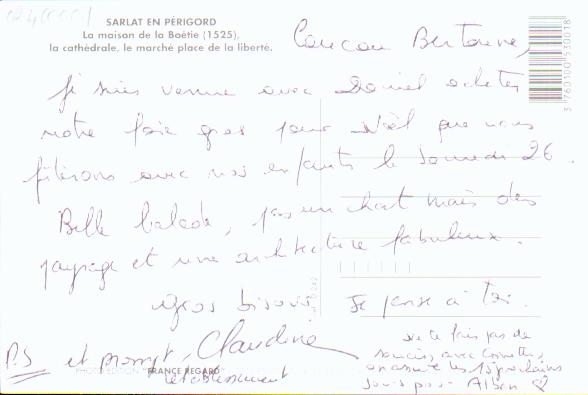 SARLAT EN PÉRIGORD
La maison de la Boëtie (1525),
la cathédrale, le marché place de la liberté.
3 760100 530018
Coucou
Je suis venue avec Daniel acheter
notre foie gras pour Noël que nous
fêterons avec nos enfants le Samedi 26.
Belle balade, pas un chat mais des
paysage et une architecture fabuleux.
gros bisous Je pense à toi.
Claudine
P.S et prompt
rétablissement
PHOTO EDITION "FRANCE REGARD"
ne te fais pas de
soucis avec
on assure les 15 prochains
jours pour Alban ♡